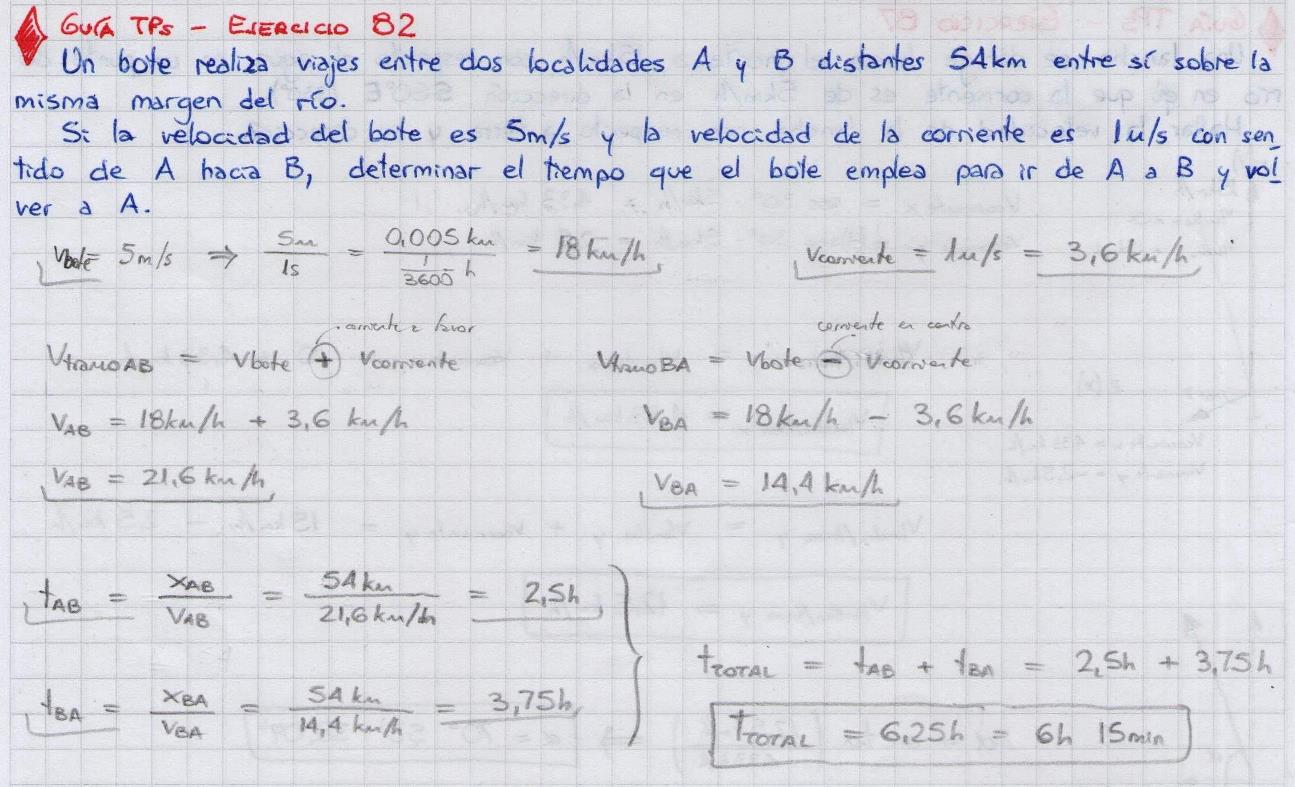 GUÍA TPs - EJERCICIO 82
Un bote realiza viajes entre dos localidades A y B distantes 54km entre sí sobre la
misma margen del río.
Si la velocidad del bote es 5m/s y la velocidad de la corriente es 1m/s con sen
tido de A hacia B, determinar el tiempo que el bote emplea para ir de A a B y vol
ver a A.
Vbote = 5m/s ⇒ 5m / 1s = 0,005 km / (1/3600 h) = 18 km/h
Vcorriente = 1m/s = 3,6 km/h
corriente a favor
corriente en contra
VtramoAB = Vbote + Vcorriente
VtramoBA = Vbote − Vcorriente
VAB = 18km/h + 3,6 km/h
VBA = 18km/h − 3,6 km/h
VAB = 21,6 km/h
VBA = 14,4 km/h
tAB = XAB / VAB = 54 km / 21,6 km/h = 2,5h
tBA = XBA / VBA = 54 km / 14,4 km/h = 3,75h
tTOTAL = tAB + tBA = 2,5h + 3,75h
tTOTAL = 6,25h = 6h 15min